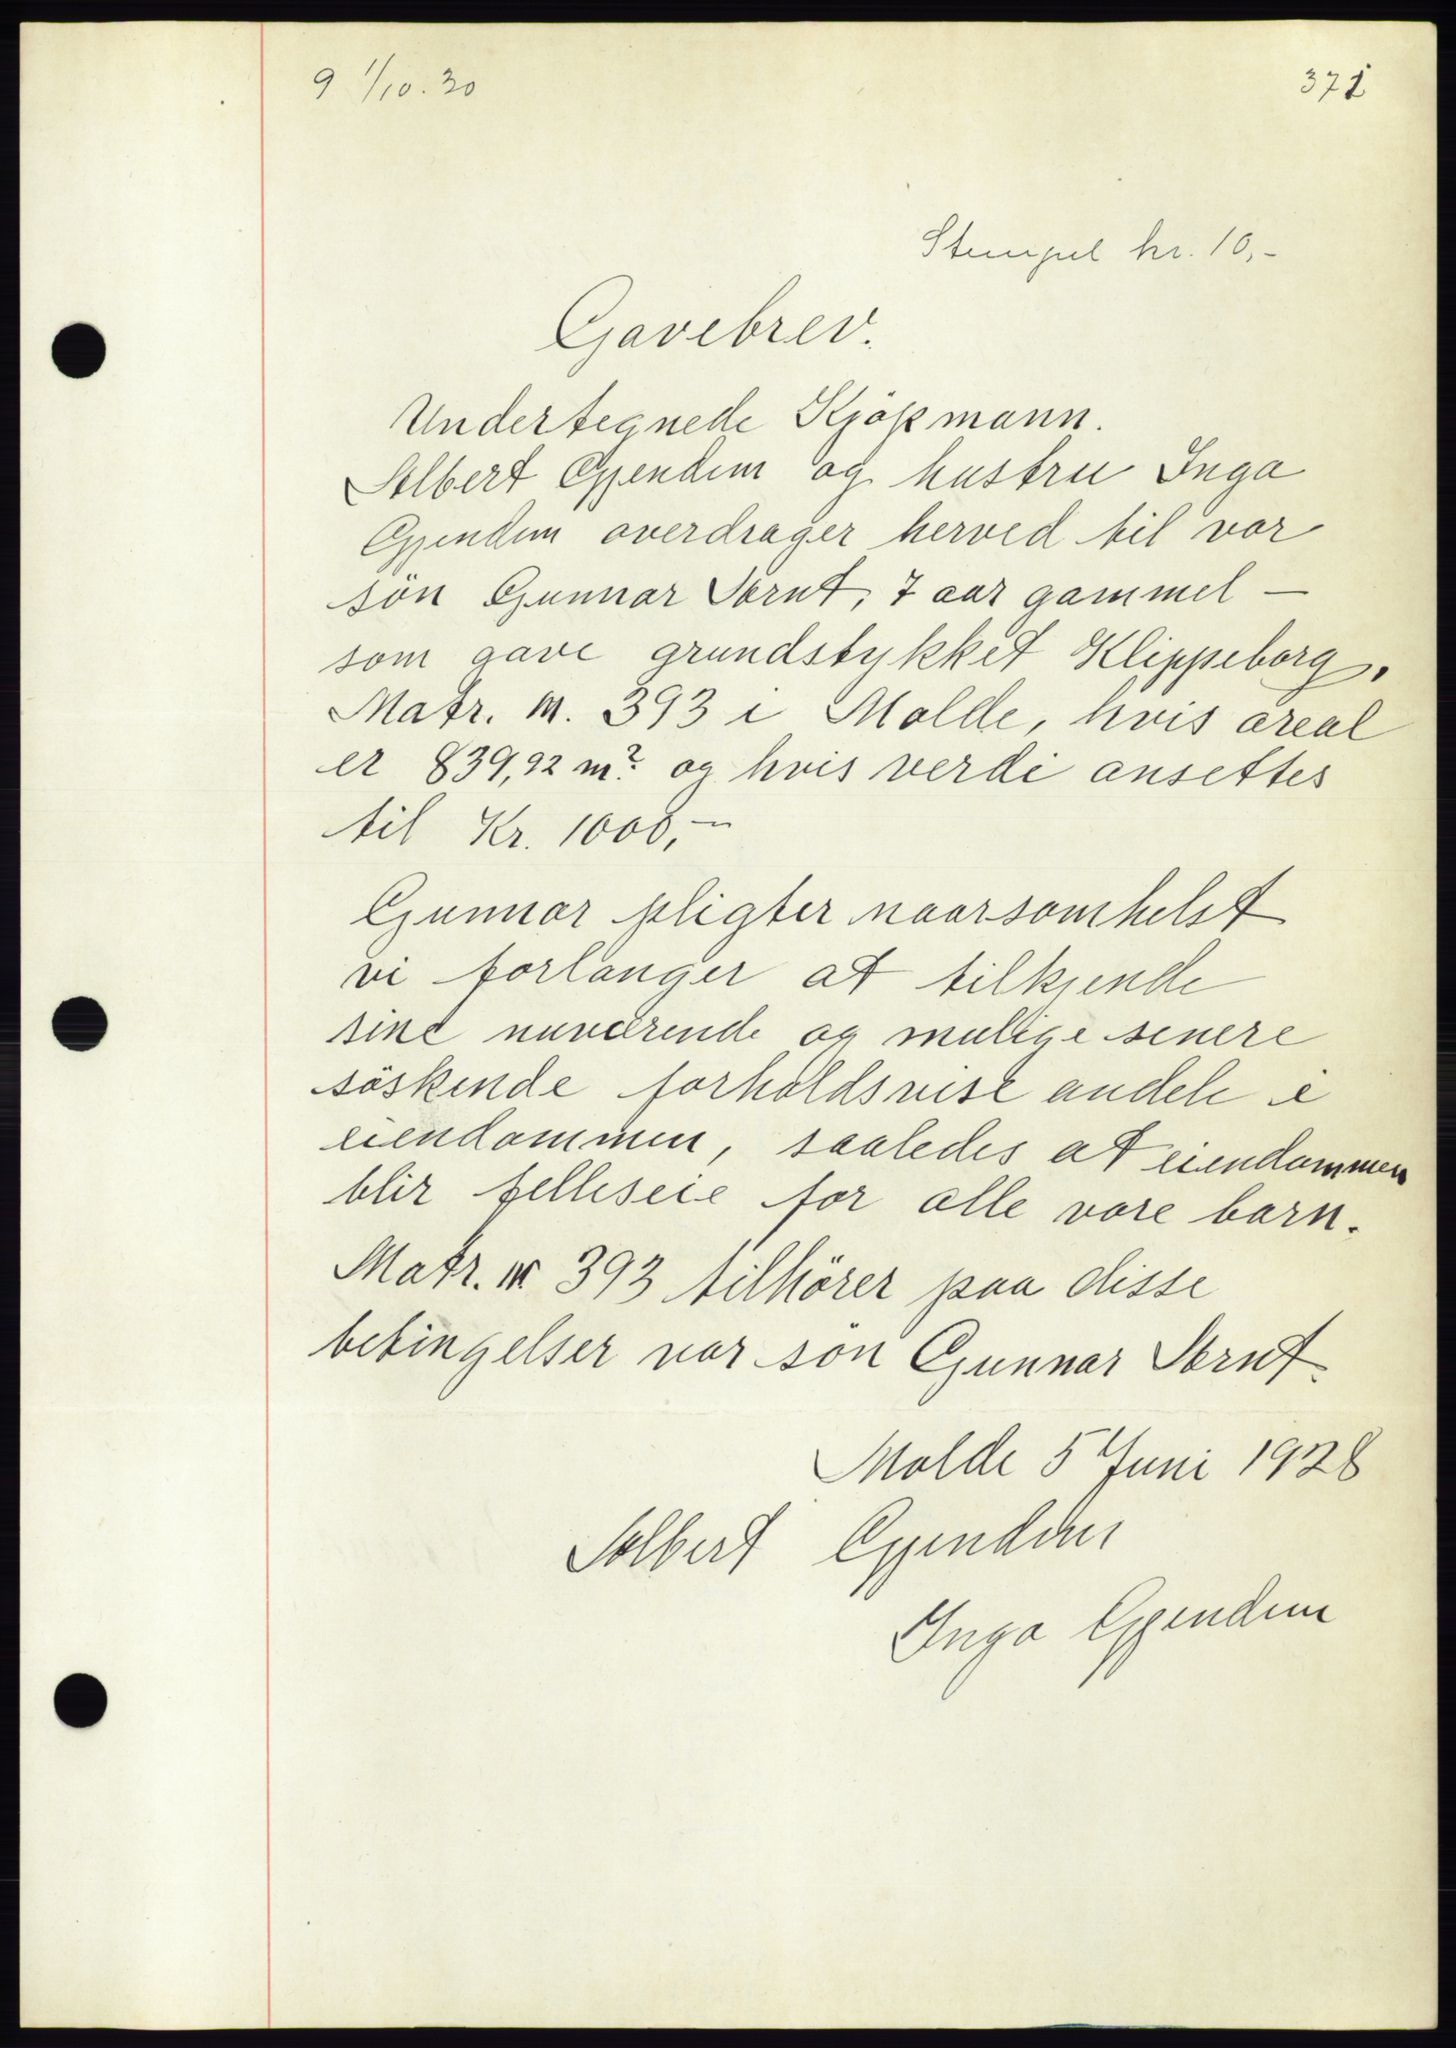 9 1/10. 30
371
Stempel kr. 10,-
Gavebrev.
Undertegnede Kjöpmann.
Albert Gjendem og hustru Inga
Gjendem overdrager herved til vor
sön Gunnar Arnt, 7 aar gammel —
som gave grundstykket Klippeborg,
Matr. nr. 393 i Molde, hvis areal
er 839,92 m² og hvis verdi ansettes
til Kr. 1000,—
Gunnar pligter naarsomhelst
vi forlanger at tilkjende
sine nuværende og mulige senere
söskende forholdsvise andele i
eiendommen, saaledes at eiendommen
blir felleseie for alle vore barn.
Matr. nr 393 tilhörer paa disse
betingelser vor sön Gunnar Arnt.
Molde 5 Juni 1928
Albert Gjendem
Inga Gjendem